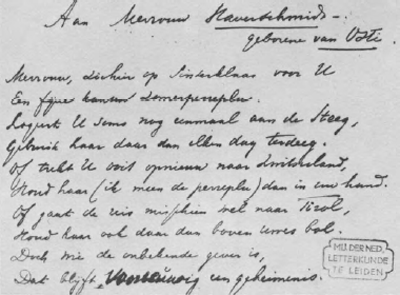 Aan Mevrouw Haverschmidt –.
geborene van Osti.
Mevrouw, ziehier op Sinterklaas voor U
Een fijne zomerparaplu.
Logeert U soms nog eenmaal aan de Steeg,
Gebruik haar daar dan elken dag terdeeg.
Of trekt U ooit opnieuw naar Zwitserland,
Houd haar (ik meen de parreplu) dan in uw hand.
Of gaat de reis misschien wel naar Tirol,
Houd haar ook daar dan boven uwes bol.
Doch wie de onbekende gever is,
Dat blijft een geheimenis.
MIJ DER NED.
LETTERKUNDE
TE LEIDEN